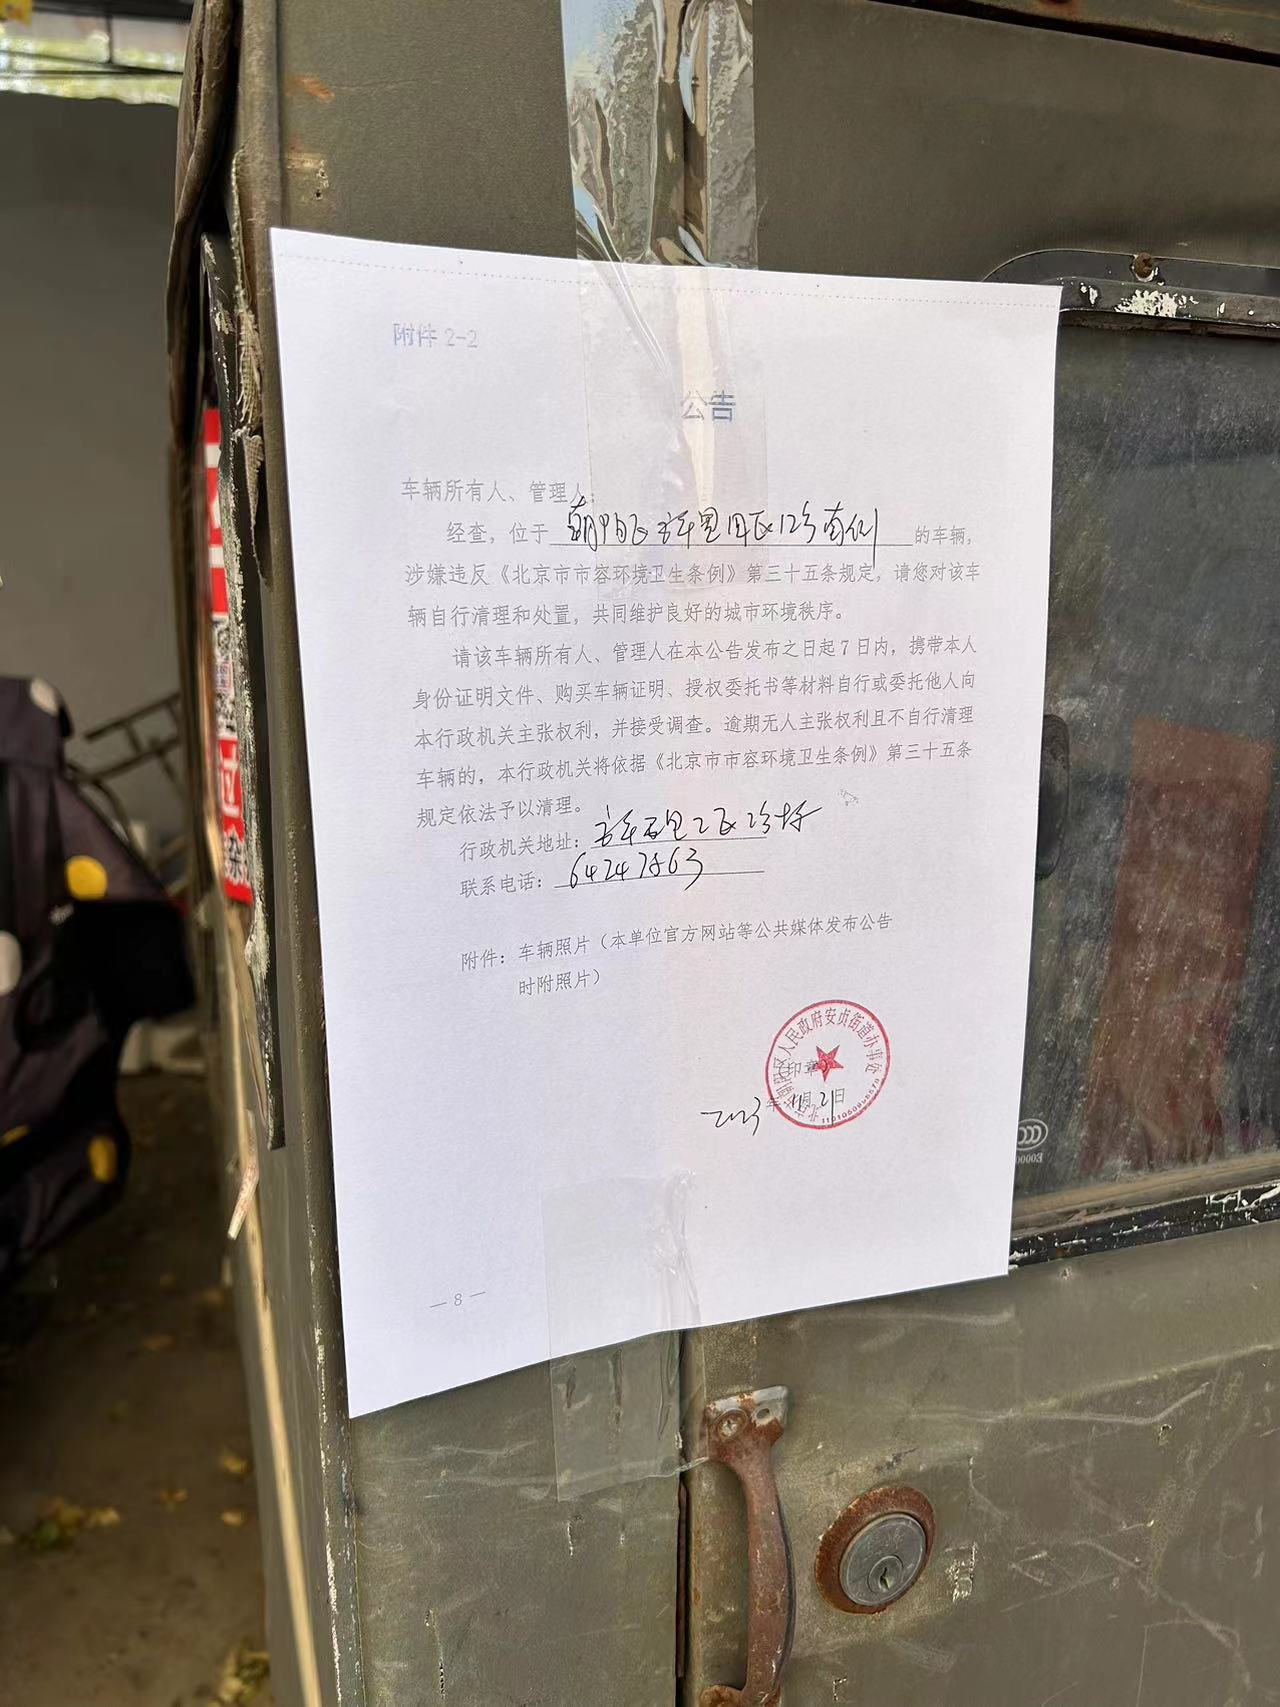 附件 2-2
公告
车辆所有人、管理人:
经查，位于 朝阳区安华里四区12号南侧 的车辆，
涉嫌违反《北京市市容环境卫生条例》第三十五条规定，请您对该车
辆自行清理和处置，共同维护良好的城市环境秩序。
请该车辆所有人、管理人在本公告发布之日起7日内，携带本人
身份证明文件、购买车辆证明、授权委托书等材料自行或委托他人向
本行政机关主张权利，并接受调查。逾期无人主张权利且不自行清理
车辆的，本行政机关将依据《北京市市容环境卫生条例》第三十五条
规定依法予以清理。
行政机关地址：
联系电话：
附件：车辆照片（本单位官方网站等公共媒体发布公告
时附照片）
北京市朝阳区人民政府安贞街道办事处
（印章）
2023年11月21日
— 8 —
过